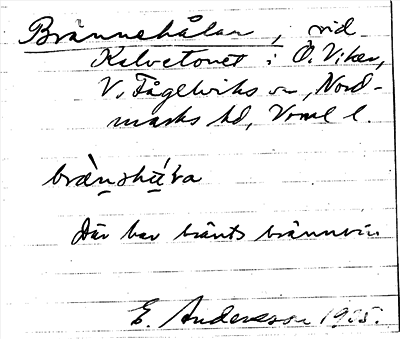 Brännehålan, vid
Kalvetornet i Ö. Viker,
V. Fågelviks sn, Nord-
marks hd, Vrml l.
Där har bränts brännvin
E. Andersson 1925.